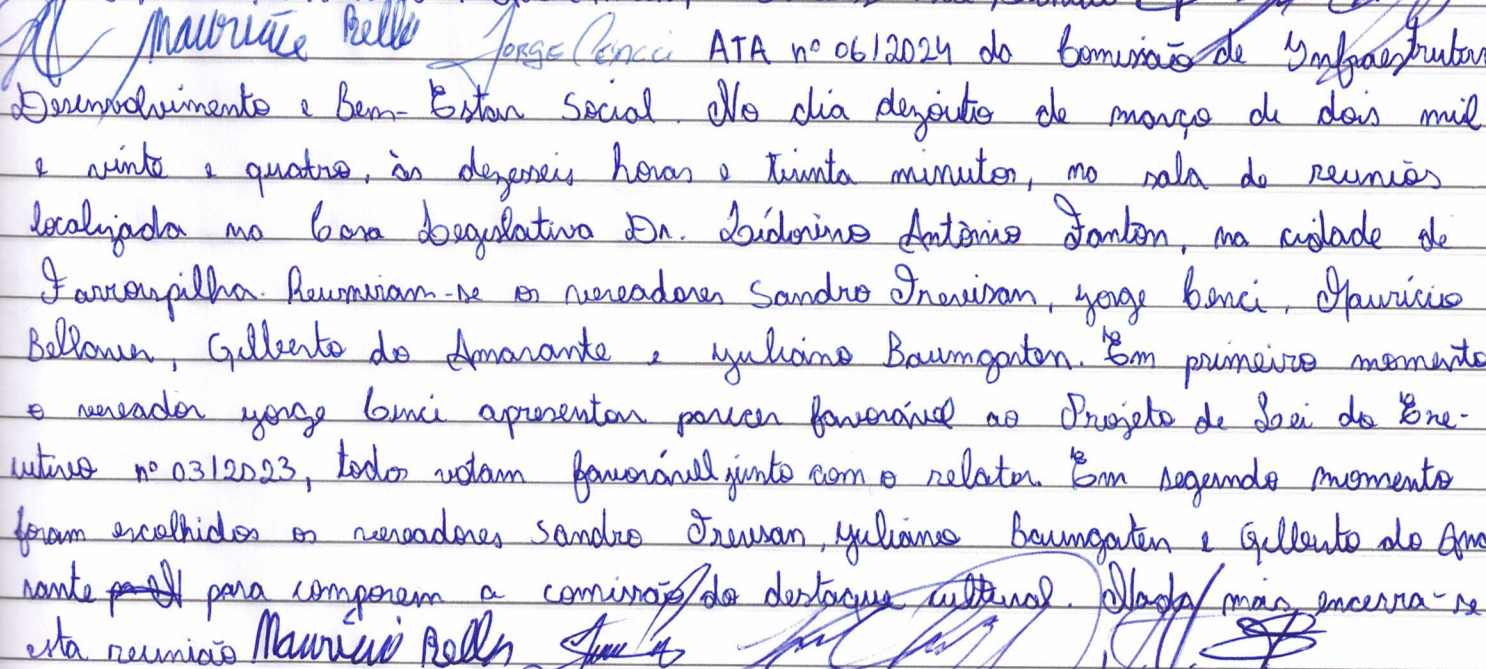 Maurício Bello Jorge Cenci ATA nº 06/2024 da Comissão de Infraestrutura
Desenvolvimento e Bem-Estar Social. No dia dezoito de março de dois mil
e vinte e quatro, às dezesseis horas e trinta minutos, na sala de reuniões
localizada na Casa Legislativa Dr. Lidorino Antônio Fanton, na cidade de
Farroupilha. Reuniram-se os vereadores Sandro Trevisan, Jorge Cenci, Maurício
Bellaver, Gilberto do Amarante e Juliano Baumgarten. Em primeiro momento
o vereador Jorge Cenci apresentou parecer favorável ao Projeto de Lei do Exe-
cutivo nº 03/2023, todos votam favorável junto com o relator. Em segundo momento
foram escolhidos os vereadores Sandro Trevisan, Juliano Baumgarten e Gilberto do Ama
rante para comporem a comissão do destaque cultural. Nada mais, encerra-se
esta reunião Maurício Bello